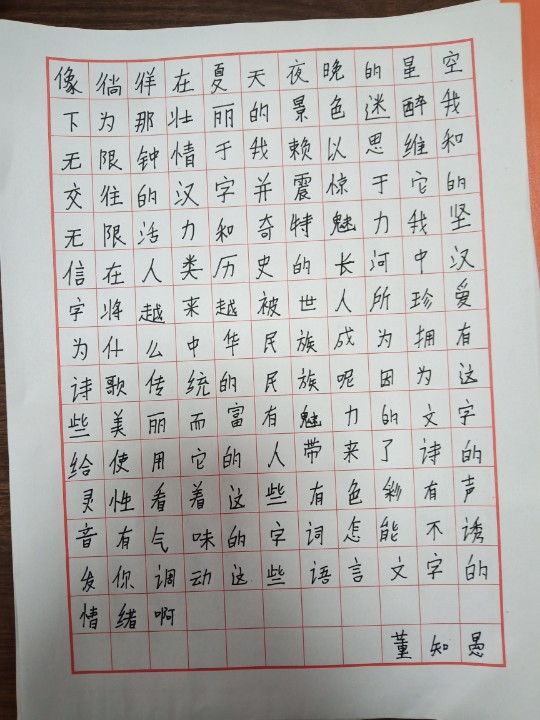 像徜徉在夏天夜晚的星空
下为那壮丽的景色迷醉我
无限钟情于我赖以思维和
交往的汉字并震惊于它的
无限活力和奇特魅力我坚
信在人类历史的长河中汉
字将越来越被世人所珍爱
为什么中华民族成为拥有
诗歌传统的民族呢因为这
些美丽而富有魅力的文字
给使用它的人带来了诗的
灵性看着这些有色彩有声
音有气味的字词怎能不诱
发你调动这些语言文字的
情绪啊
董知愚